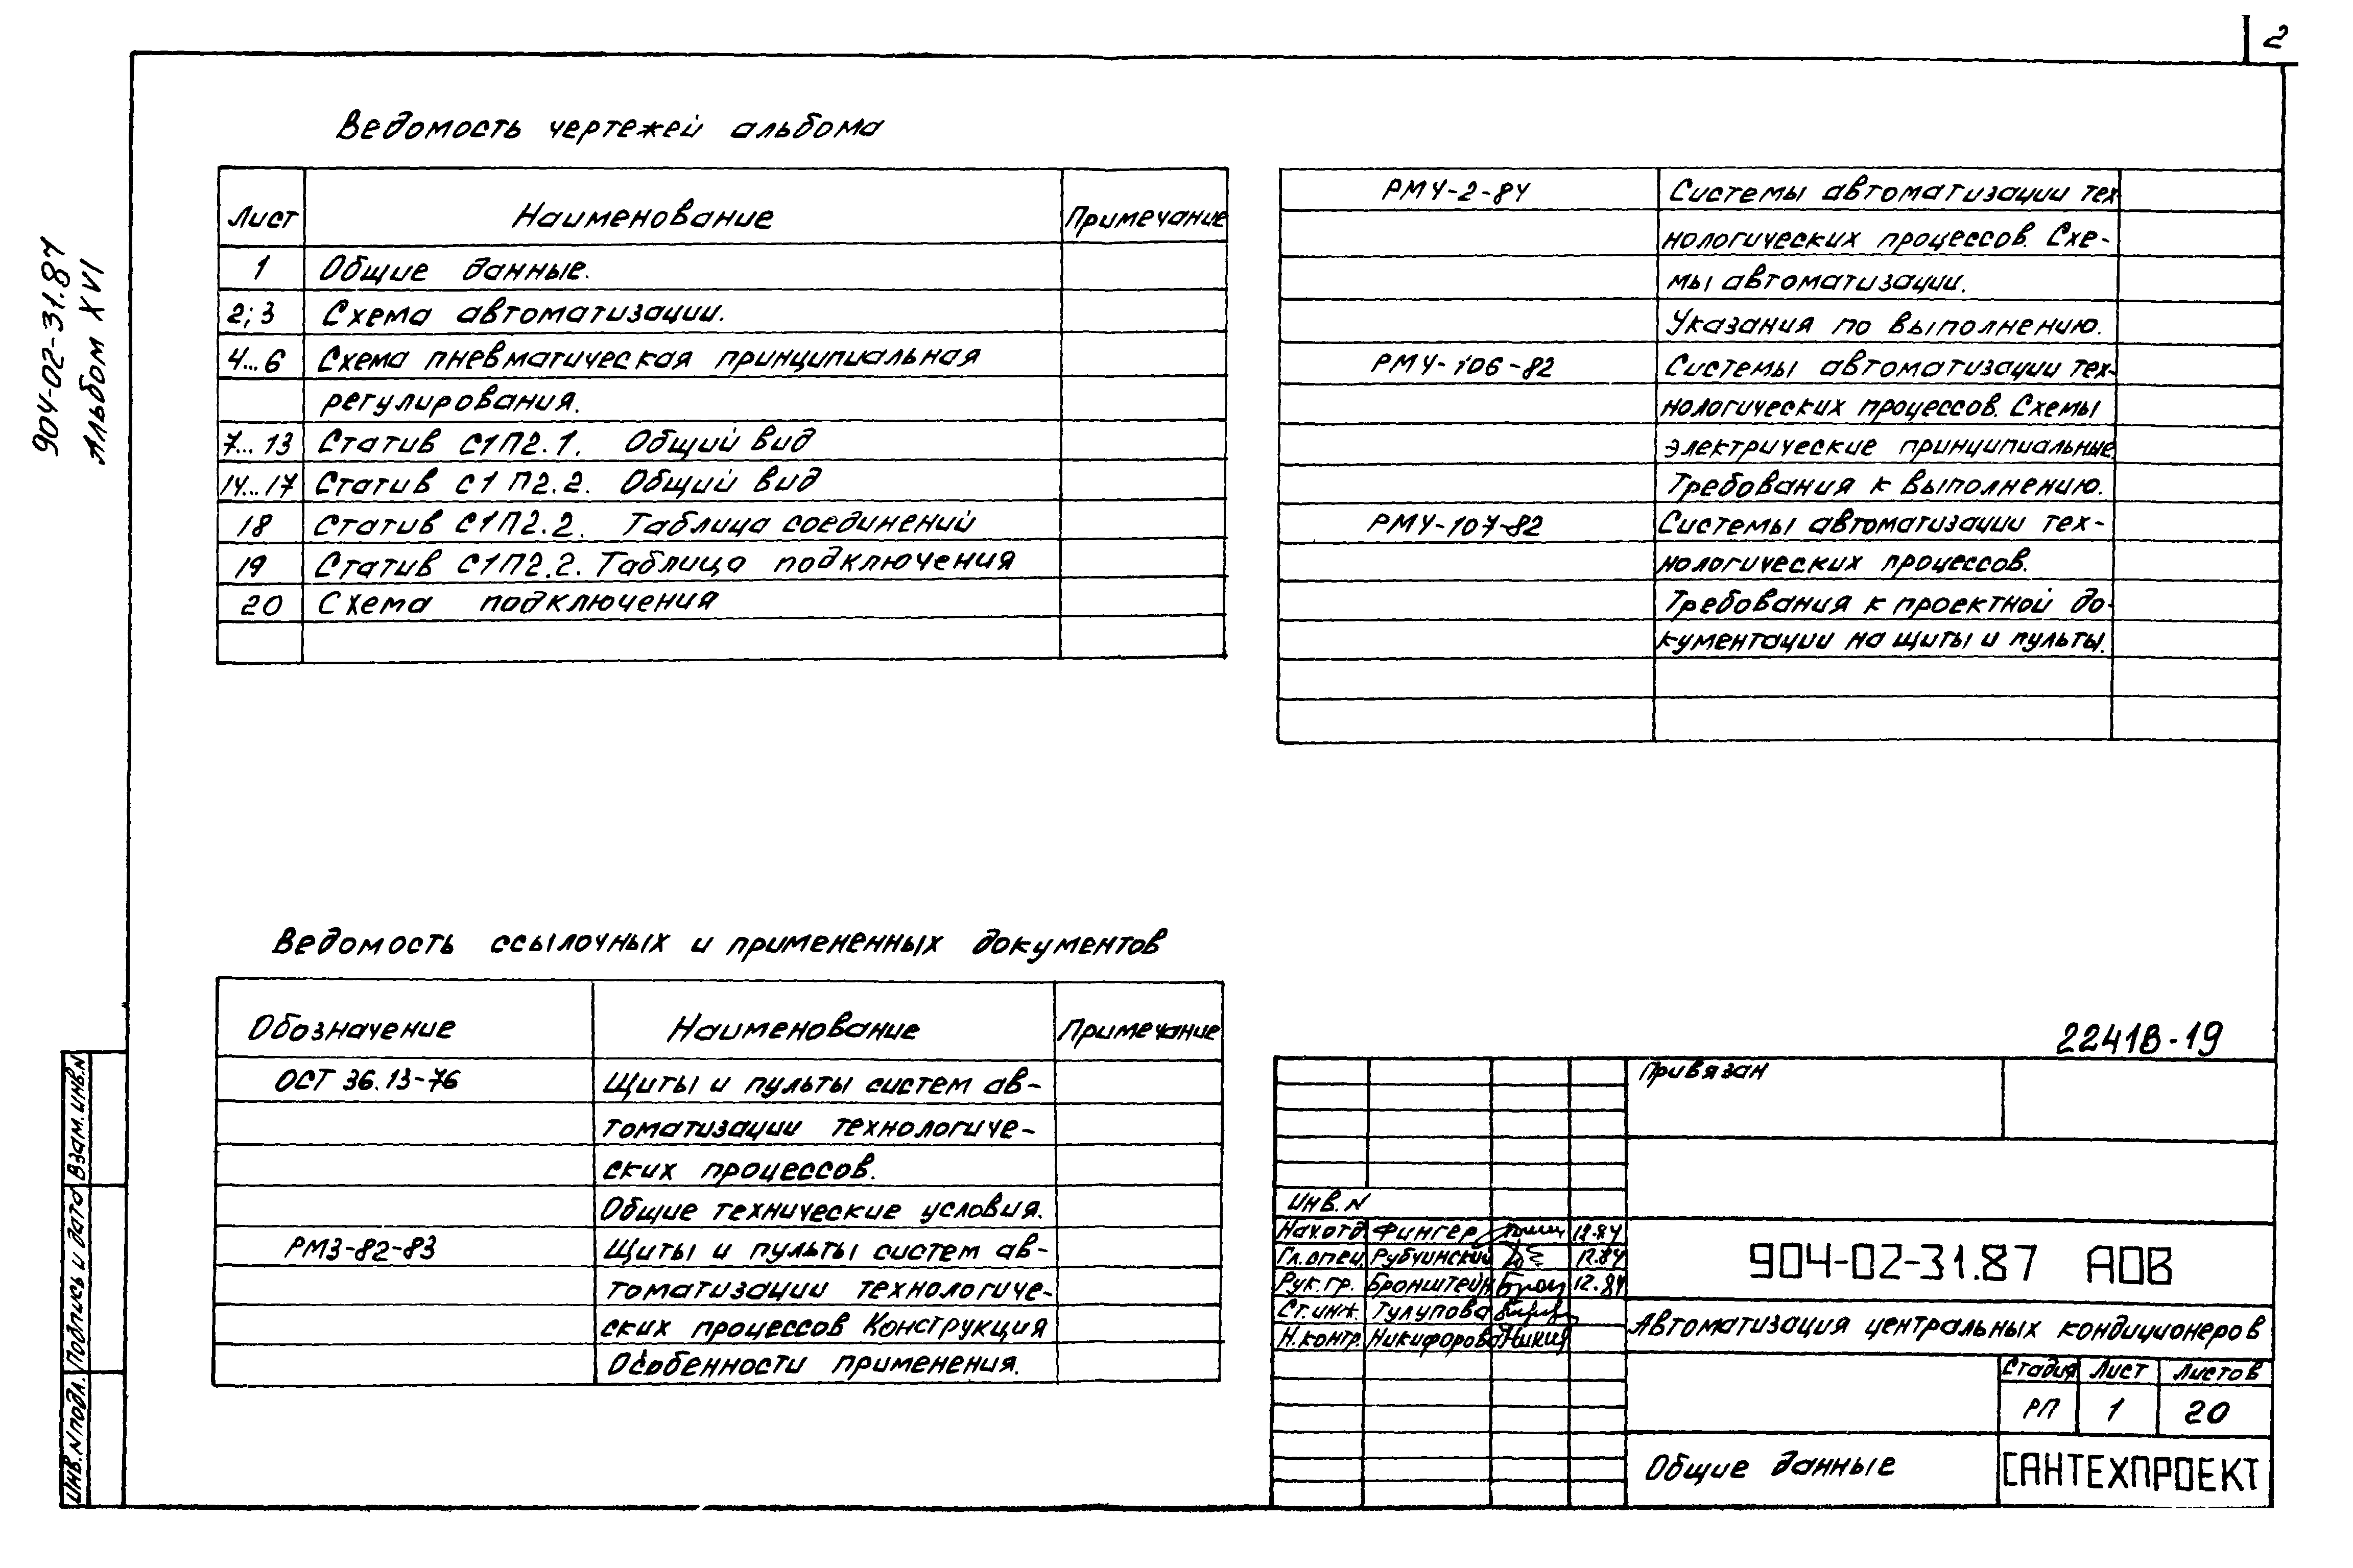 2
904-02-31.87
Альбом XVI
Ведомость чертежей альбома
Лист Наименование Примечание
1 Общие данные.
2; 3 Схема автоматизации.
4...6 Схема пневматическая принципиальная
регулирования.
7...13 Статив С1П2.1. Общий вид
14...17 Статив С1П2.2. Общий вид
18 Статив С1П2.2. Таблица соединений
19 Статив С1П2.2. Таблица подключения
20 Схема подключения
РМ4-2-84 Системы автоматизации тех-
нологических процессов. Схе-
мы автоматизации.
Указания по выполнению.
РМ4-106-82 Системы автоматизации тех-
нологических процессов. Схемы
электрические принципиальные
Требования к выполнению.
РМ4-107-82 Системы автоматизации тех-
нологических процессов.
Требования к проектной до-
кументации на щиты и пульты.
Ведомость ссылочных и примененных документов
Обозначение Наименование Примечание
ОСТ 36.13-76 Щиты и пульты систем ав-
томатизации технологиче-
ских процессов.
Общие технические условия.
РМ3-82-83 Щиты и пульты систем ав-
томатизации технологиче-
ских процессов Конструкция
Особенности применения.
22418-19
Привязан
Инв. N
Нач.отд Фингер 12.84
Гл. спец. Рубчинский 12.84
Рук. гр. Бронштейн Брон 12.84
Ст. инж. Тулупова
Н. контр. Никифорова Никиф
904-02-31.87 АОВ
Автоматизация центральных кондиционеров
Стадия Лист Листов
РП 1 20
Общие данные
САНТЕХПРОЕКТ
Взам. инв. N
Подпись и дата
Инв. N подл.